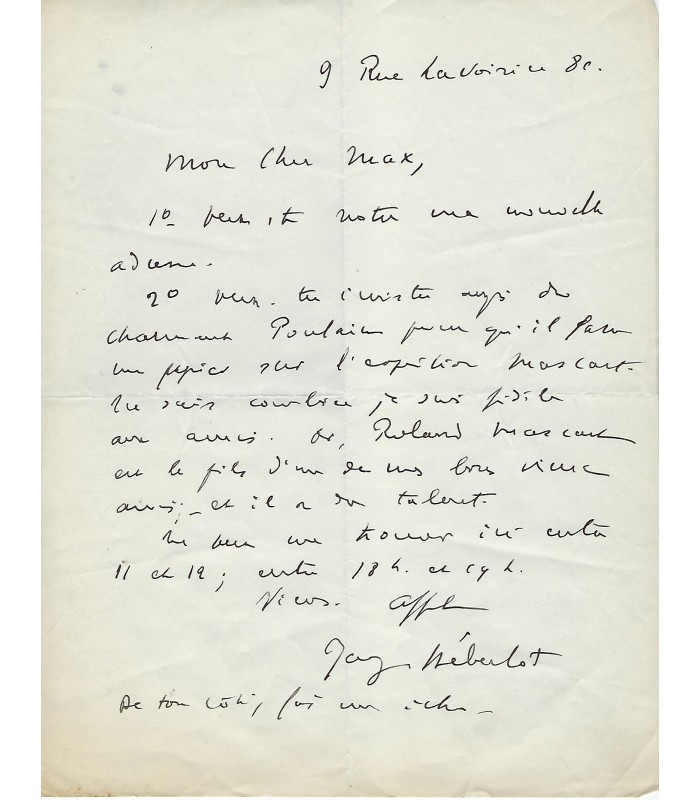 9 Rue Lavoisier 8e.
Mon Cher Max,
1º veux-tu noter ma nouvelle
adresse.
2º veux-tu insister auprès du
charmant Poulain pour qu'il fasse
un papier sur l'exposition Mascart.
Tu sais combien je suis fidèle
aux amis. Or, Roland Mascart
est le fils d'un de mes bons vieux
amis; et il a du talent.
Tu peux me trouver ici entre
11 et 12; entre 18 h. et 19 h.
Viens. Affect
Jacques Hébertot
De ton côté, fais un écho_